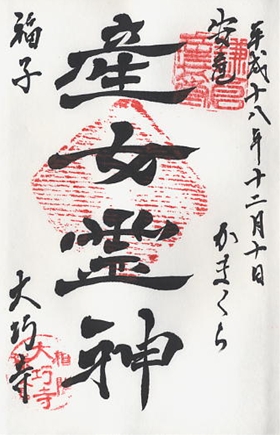 平成十八年十二月十日
かまくら
安産
産女霊神
福子
大巧寺
大巧寺